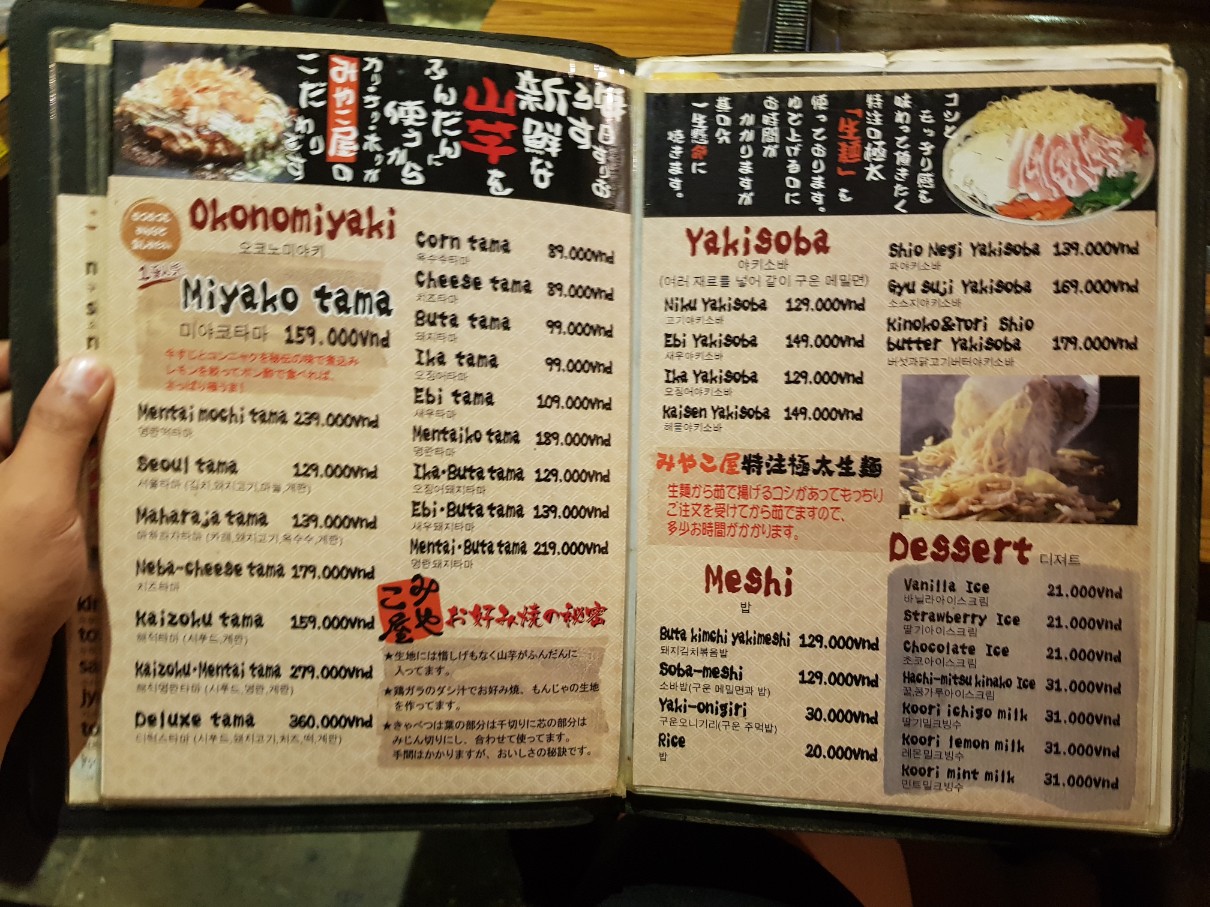 毎日すりおろす
新鮮な
山芋を
ふんだんに
使うから
カリ・サク・ホックが
みやこ屋の
こだわりです
Okonomiyaki
오코노미야키
Miyako tama
미야코타마 159.000Vnd
牛すじとコンニャクを秘伝の味で煮込み
レモンを絞ってポン酢で食べれば、
さっぱり極うま!
Mentai mochi tama 239.000Vnd
명란떡타마
Seoul tama 129.000Vnd
서울타마 (김치,돼지고기,마늘,계란)
Maharaja tama 139.000Vnd
마하라자타마 (카레,돼지고기,옥수수,계란)
Neba-cheese tama 179.000Vnd
치즈타마
Kaizoku tama 159.000Vnd
해적타마 (시푸드,계란)
Kaizoku・Mentai tama 279.000Vnd
해적명란타마 (시푸드,명란,계란)
Deluxe tama 360.000Vnd
디럭스타마 (시푸드,돼지고기,치즈,떡,계란)
Corn tama 89.000Vnd
옥수수타마
Cheese tama 89.000Vnd
치즈타마
Buta tama 99.000Vnd
돼지타마
Ika tama 99.000Vnd
오징어타마
Ebi tama 109.000Vnd
새우타마
Mentaiko tama 189.000Vnd
명란타마
Ika・Buta tama 129.000Vnd
오징어돼지타마
Ebi・Buta tama 139.000Vnd
새우돼지타마
Mentai・Buta tama 219.000Vnd
명란돼지타마
みやこ屋
お好み焼の秘密
★生地には惜しげもなく山芋がふんだんに
入ってます。
★鶏ガラのダシ汁でお好み焼、もんじゃの生地
を作ってます。
★きゃべつは葉の部分は千切りに芯の部分は
みじん切りにし、合わせて使ってます。
手間はかかりますが、おいしさの秘訣です。
コシと
モッチリ感を
味わって頂きたく
特注の極太
「生麺」を
使っております。
ゆで上げるのに
お時間が
かかりますが
其の分
一生懸命に
焼きます。
Yakisoba
야키소바
(여러 재료를 넣어 같이 구운 메밀면)
Niku Yakisoba 129.000Vnd
고기야키소바
Ebi Yakisoba 149.000Vnd
새우야키소바
Ika Yakisoba 129.000Vnd
오징어야키소바
Kaisen Yakisoba 149.000Vnd
해물야키소바
みやこ屋特注極太生麺
生麺から茹で揚げるコシがあってもっちり
ご注文を受けてから茹でますので、
多少お時間がかかります。
Meshi
밥
Buta kimchi yakimeshi 129.000Vnd
돼지김치볶음밥
Soba-meshi 129.000Vnd
소바밥(구운 메밀면과 밥)
Yaki-onigiri 30.000Vnd
구운오니기리(구운 주먹밥)
Rice 20.000Vnd
밥
Shio Negi Yakisoba 139.000Vnd
파야키소바
Gyu Suji Yakisoba 169.000Vnd
소스지야키소바
Kinoko&Tori Shio
butter Yakisoba 179.000Vnd
버섯과닭고기버터야키소바
Dessert 디져트
Vanilla Ice 21.000Vnd
바닐라아이스크림
Strawberry Ice 21.000Vnd
딸기아이스크림
Chocolate Ice 21.000Vnd
초코아이스크림
Hachi-mitsu kinako Ice 31.000Vnd
꿀,콩가루아이스크림
Koori ichigo milk 31.000Vnd
딸기밀크빙수
Koori lemon milk 31.000Vnd
레몬밀크빙수
Koori mint milk 31.000Vnd
민트밀크빙수